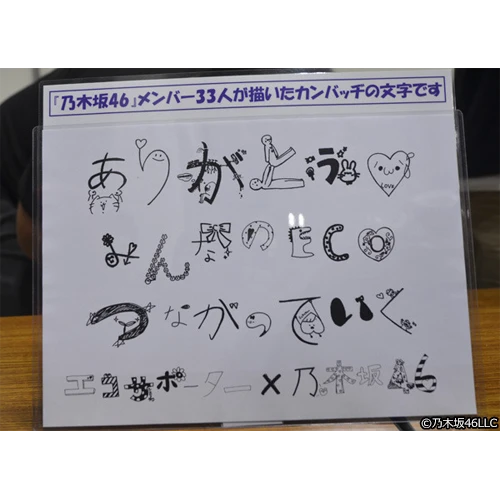 『乃木坂46』メンバー33人が描いたカンバッチの文字です
ありがとう
LOVE
みんなのECO
つながっていく
エコサポーター×乃木坂46
©乃木坂46LLC